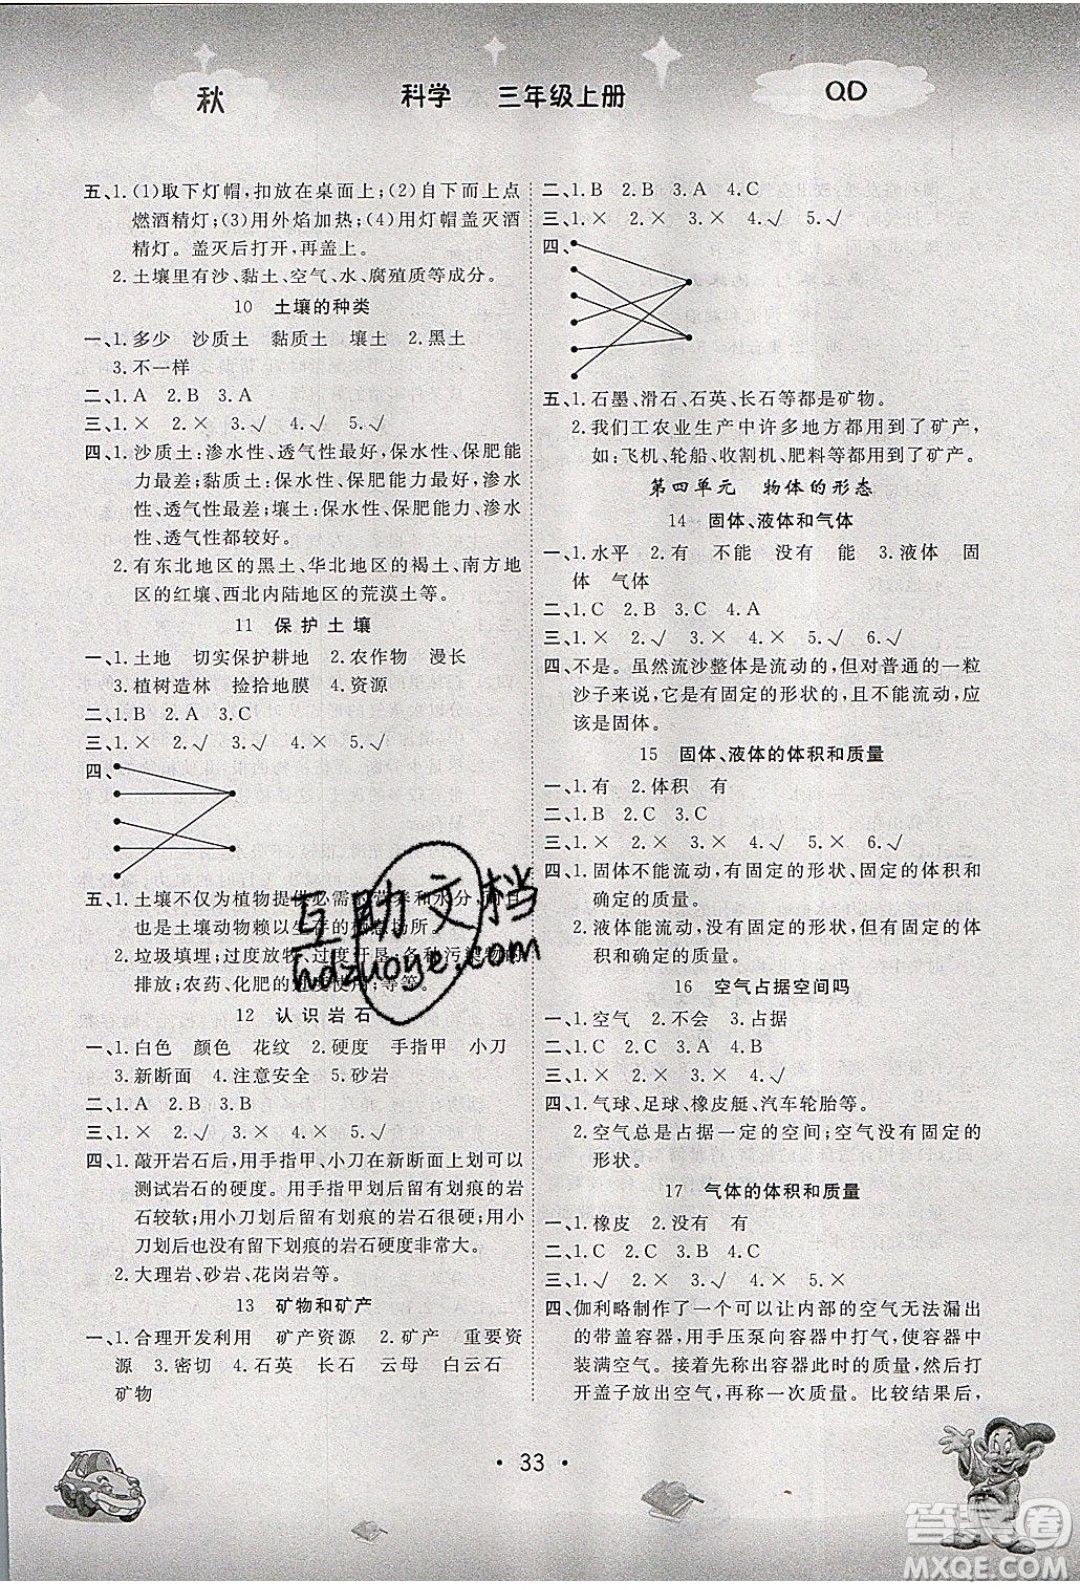 秋
科学 三年级上册
QD
五、1.(1)取下灯帽,扣放在桌面上;(2)自下而上点
燃酒精灯;(3)用外焰加热;(4)用灯帽盖灭酒
精灯。盖灭后打开,再盖上。
2.土壤里有沙、黏土、空气、水、腐殖质等成分。
10 土壤的种类
一、1.多少 沙质土 黏质土 壤土 2.黑土
3.不一样
二、1.A 2.B 3.A
三、1.× 2.× 3.√ 4.√ 5.√
四、1.沙质土:渗水性、透气性最好,保水性、保肥能
力最差;黏质土:保水性、保肥能力最好,渗水
性、透气性最差;壤土:保水性、保肥能力,渗水
性、透气性都较好。
2.有东北地区的黑土、华北地区的褐土、南方地
区的红壤、西北内陆地区的荒漠土等。
11 保护土壤
一、1.土地 切实保护耕地 2.农作物 漫长
3.植树造林 捡拾地膜 4.资源
二、1.B 2.A 3.C
三、1.× 2.√ 3.√ 4.× 5.√
四、
五、1.土壤不仅为植物提供必需的营养和水分,而且
也是土壤动物赖以生存的栖息场所。
2.垃圾填埋;过度放牧、过度开垦、各种污染物的
排放;农药、化肥的过度使用;等等。
12 认识岩石
一、1.白色 颜色 花纹 2.硬度 手指甲 小刀
3.新断面 4.注意安全 5.砂岩
二、1.A 2.B 3.B
三、1.× 2.√ 3.× 4.√ 5.√
四、1.敲开岩石后,用手指甲、小刀在新断面上划可以
测试岩石的硬度。用手指甲划后有划痕的岩
石较软;用小刀划后有划痕的岩石很硬;用小
刀划后没有留下划痕的岩石硬度非常大。
2.大理岩、砂岩、花岗岩等。
13 矿物和矿产
一、1.合理开发利用 矿产资源 2.矿产 重要资
源 3.密切 4.石英 长石 云母 白云石
矿物
二、1.B 2.B 3.A 4.C
三、1.× 2.× 3.× 4.√ 5.√
四、
五、1.石墨、滑石、石英、长石等都是矿物。
2.我们工农业生产中许多地方都用到了矿产,
如:飞机、轮船、收割机、肥料等都用到了矿产。
第四单元 物体的形态
14 固体、液体和气体
一、1.水平 2.有 不能 没有 能 3.液体 固
体 气体
二、1.C 2.B 3.A 4.A
三、1.× 2.√ 3.× 4.√ 5.√ 6.√
四、不是。虽然流沙整体是流动的,但对普通的一粒
沙子来说,它是有固定的形状的,且不能流动,应
该是固体。
15 固体、液体的体积和质量
一、1.有 2.体积 有
二、1.B 2.C 3.B 4.C
三、1.× 2.× 3.√ 4.× 5.√ 6.√
四、1.固体不能流动,有固定的形状、固定的体积和
确定的质量。
2.液体能流动,没有固定的形状,有固定的体
积和确定的质量。
16 空气占据空间吗
一、1.空气 2.不会 3.占据
二、1.C 2.C 3.B 4.C
三、1.× 2.× 3.√ 4.× 5.√
四、1.气球、足球、橡皮艇、汽车轮胎等。
2.空气总是占据一定的空间;空气没有固定的
形状。
17 气体的体积和质量
一、1.橡皮 2.没有 有
二、1.C 2.C 3.A 4.C
三、1.√ 2.× 3.× 4.√ 5.√
四、伽利略制作了一个可以让内部的空气无法漏出
的带盖容器,用手压泵向容器中打气,使容器中
装满空气。接着先称出容器的质量,然后打
开盖子放出空气,再称一次质量。比较结果后,
互助文档
hdzuoye.com
· 33 ·
答案圈
MXQE.COM